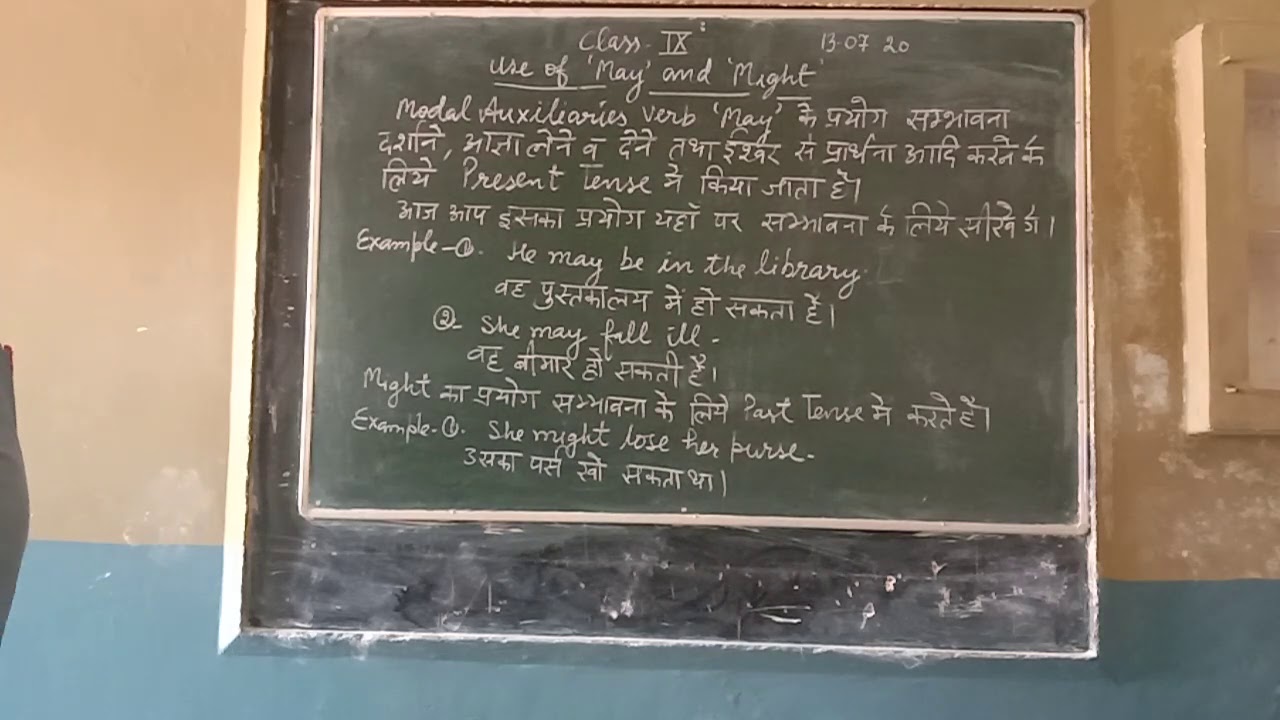 Class - IX
13-07 20
Use of 'May' and 'Might'
Modal Auxiliaries verb 'May' के प्रयोग सम्भावना
दर्शाने, आज्ञा लेने व देने तथा ईश्वर से प्रार्थना आदि करने के
लिये Present Tense मे किया जाता है।
आज आप इसका प्रयोग यहाँ पर सम्भावना के लिये सीखेगें।
Example-①. He may be in the library.
वह पुस्तकालय में हो सकता है।
② She may fall ill.
वह बीमार हो सकती है।
Might का प्रयोग सम्भावना के लिये Past Tense मे करते है।
Example-①. She might lose her purse.
उसका पर्स खो सकता था।